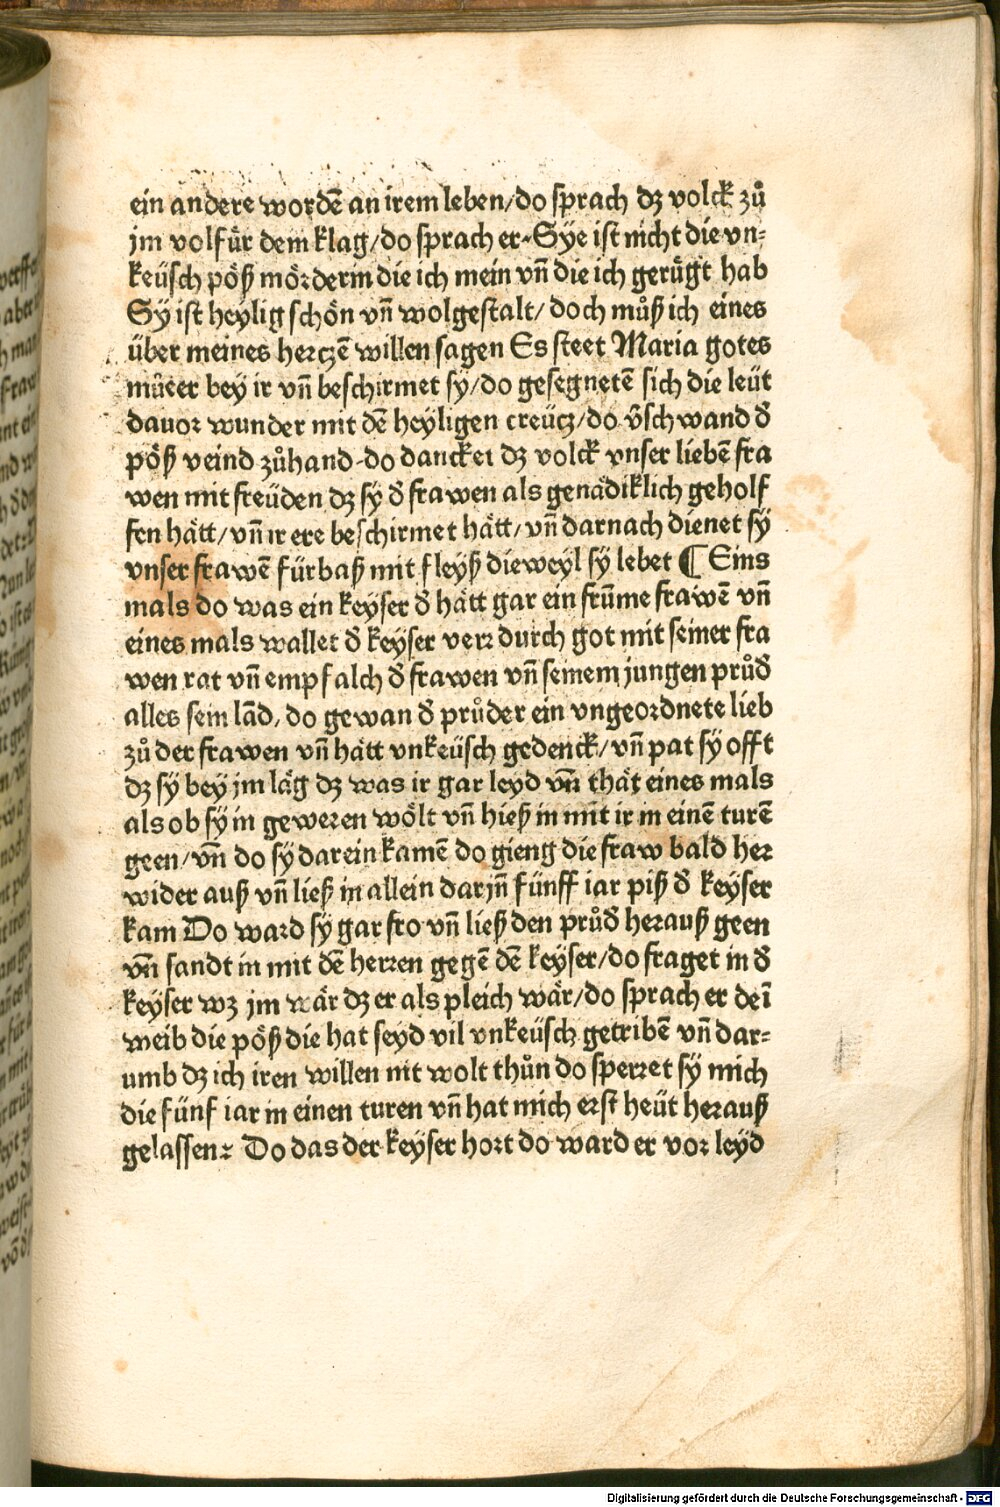 ein andere wordē an irem leben/do sprach dz volck zů
jm volfür dem klag/do sprach er. Sye ist nicht die vn-
keüsch pöß mörderin die ich mein vñ die ich gerügt hab
Sy ist heylig schön vñ wolgestalt/ doch můß ich eines
über meines herczē willen sagen Es steet Maria gotes
můter bey ir vñ beschirmet sy/do gesegnetē sich die leüt
dauor wunder mit dē heyligen creücz/do v̄schwand đ
pöß veind zůhand. do dancket dz volck vnser liebē fra
wen mit freüden dz sy đ frawen als genädiklich geholf
fen hätt/vñ ir ere beschirmet hätt/ vñ darnach dienet sy
vnser frawē fürbaß mit fleyß dieweyl sy lebet ¶ Eins
mals do was ein keyser đ hätt gar ein frūme frawē vñ
eines mals wallet đ keyser verr durch got mit seiner fra
wen rat vñ empfalch đ frawen vñ seinem jungen průđ
alles sein lād, do gewan đ průder ein vngeordnete lieb
zů der frawen vñ hätt vnkeüsch gedenck/vñ pat sy offt
dz sy bey jm läg dz was ir gar leyd vñ thät eines mals
als ob sy in geweren wölt vñ hieß in mit ir in einē turē
geen/vñ do sy darein kamē do gieng die fraw bald her
wider auß vñ ließ in allein darjñ fünff iar piß đ keyser
kam Do ward sy gar fro vñ ließ den průđ herauß geen
vñ sandt in mit dē herren gegē dē keyser/do fraget in đ
keyser wz jm wär dz er als pleich wär/do sprach er deī
weib die pöß die hat seyd vil vnkeüsch getribē vñ dar-
umb dz ich iren willen nit wolt thůn do sperret sy mich
die fünf iar in einen turen vñ hat mich erst heüt herauß
gelassen: Do das der keyser hort do ward er vor leyd
Digitalisierung gefördert durch die Deutsche Forschungsgemeinschaft - DFG